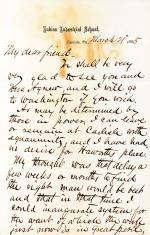 Indian Industrial School.
March 21 1885
My dear friend
I shall be very
very glad to see you and
Miss Agnew and I will go
to Washington if you wish.
If may be determined
those in power, I can leave
or remain at Carlisle with
equanimity and I have had
no desire for Haworths place.
My thought was that delay a
few weeks or months, to find
the right man would be best
and that in that time I
could inaugurate systems for
the want of which the work
first now is in great part,